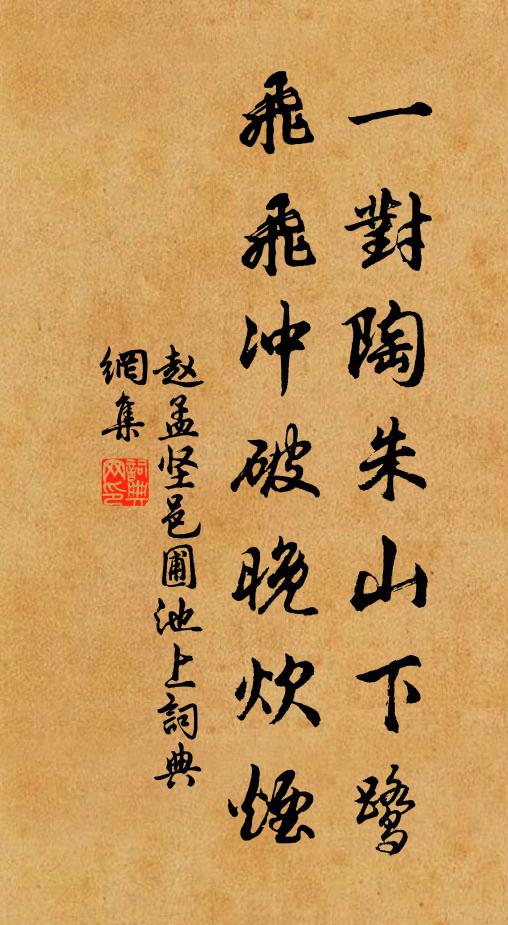 一對陶朱山下鷺
飛飛冲破晚炊煙
赵孟坚邑圃池上詞典
網集
詞典網印